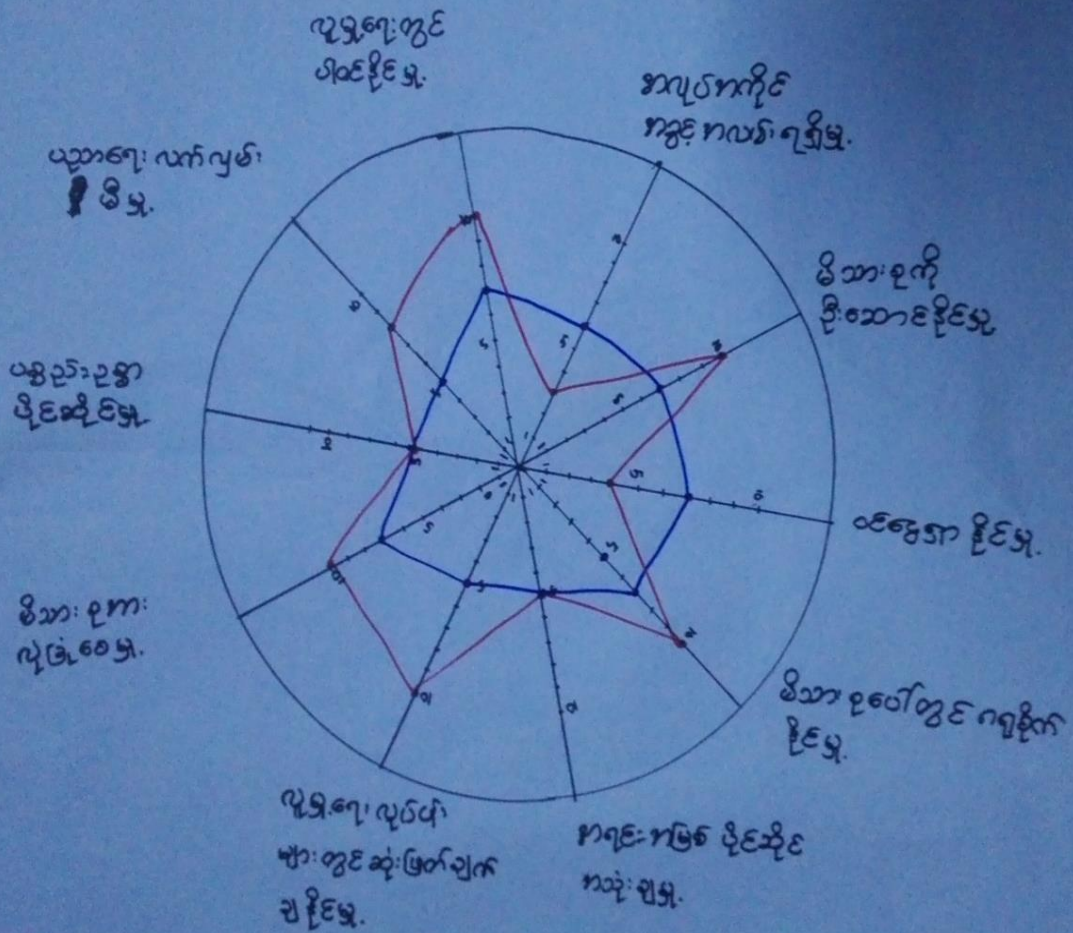 လူမှုရေးတွင်
ပါဝင်နိုင်မှု.
အလုပ်အကိုင်
အခွင့်အလမ်းရရှိမှု.
မိသားစုကို
ဦးဆောင်နိုင်မှု
ဝင်ငွေရှာနိုင်မှု.
မိသားစုပေါ်တွင် ဂရုစိုက်
နိုင်မှု.
အရင်းအမြစ် ပိုင်ဆိုင်
အသုံးချမှု.
လူမှုရေးလုပ်ငန်း
များတွင် ဆုံးဖြတ်ချက်
ချနိုင်မှု.
မိသားစုအား
လုံခြုံစေမှု.
ပစ္စည်းဥစ္စာ
ပိုင်ဆိုင်မှု.
ပညာရေး လက်လှမ်း
မီမှု.